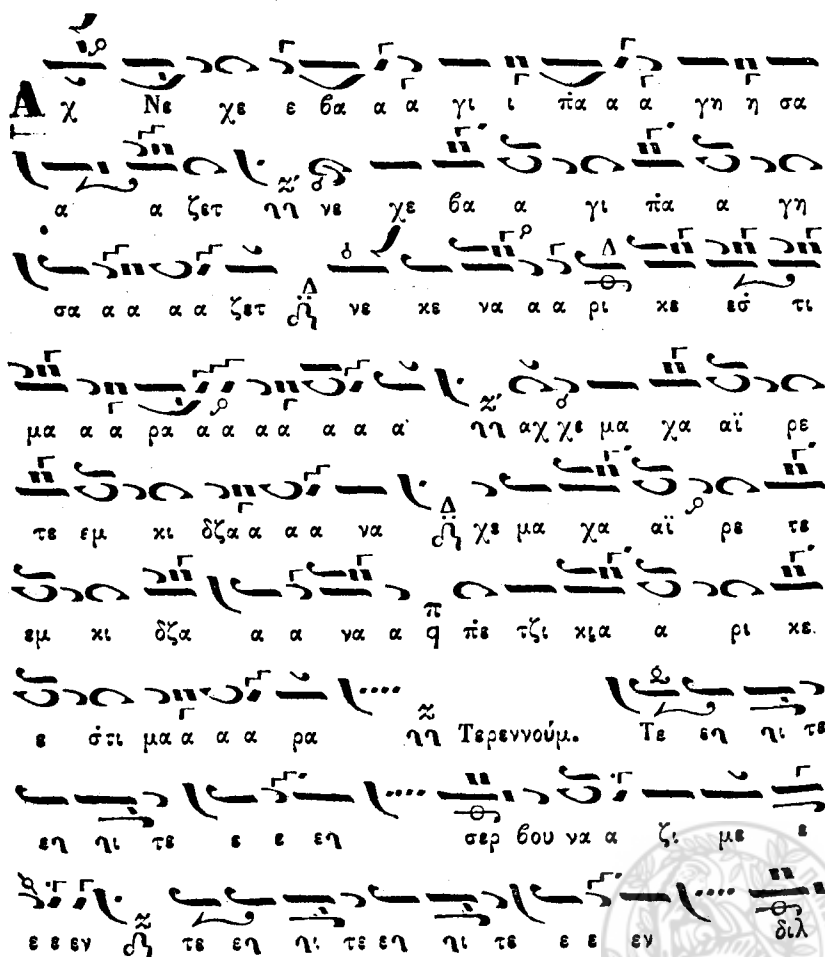 Α χ Νε χε ε βα α α γι ι πα α α γη η σα
α α ζετ νε χε βα α γι πα α γη
σα α α α α ζετ νε κε να α α ρι κε εσ τι
μα α α ρα α α α α α α α αχ χε μα χα αϊ ρε
τε εμ κι δζα α α α να χε μα χα αϊ ρε τε
εμ κι δζα α α να α πε τζι κια α ρι κε.
ε στι μα α α α ρα Τερεννούμ. Τε εη ηι τε
εη ηι τε ε ε εη σερ βου να α ζι με ε
ε ε εν τε εη ηι τε εη ηι τε ε ε εν διλ